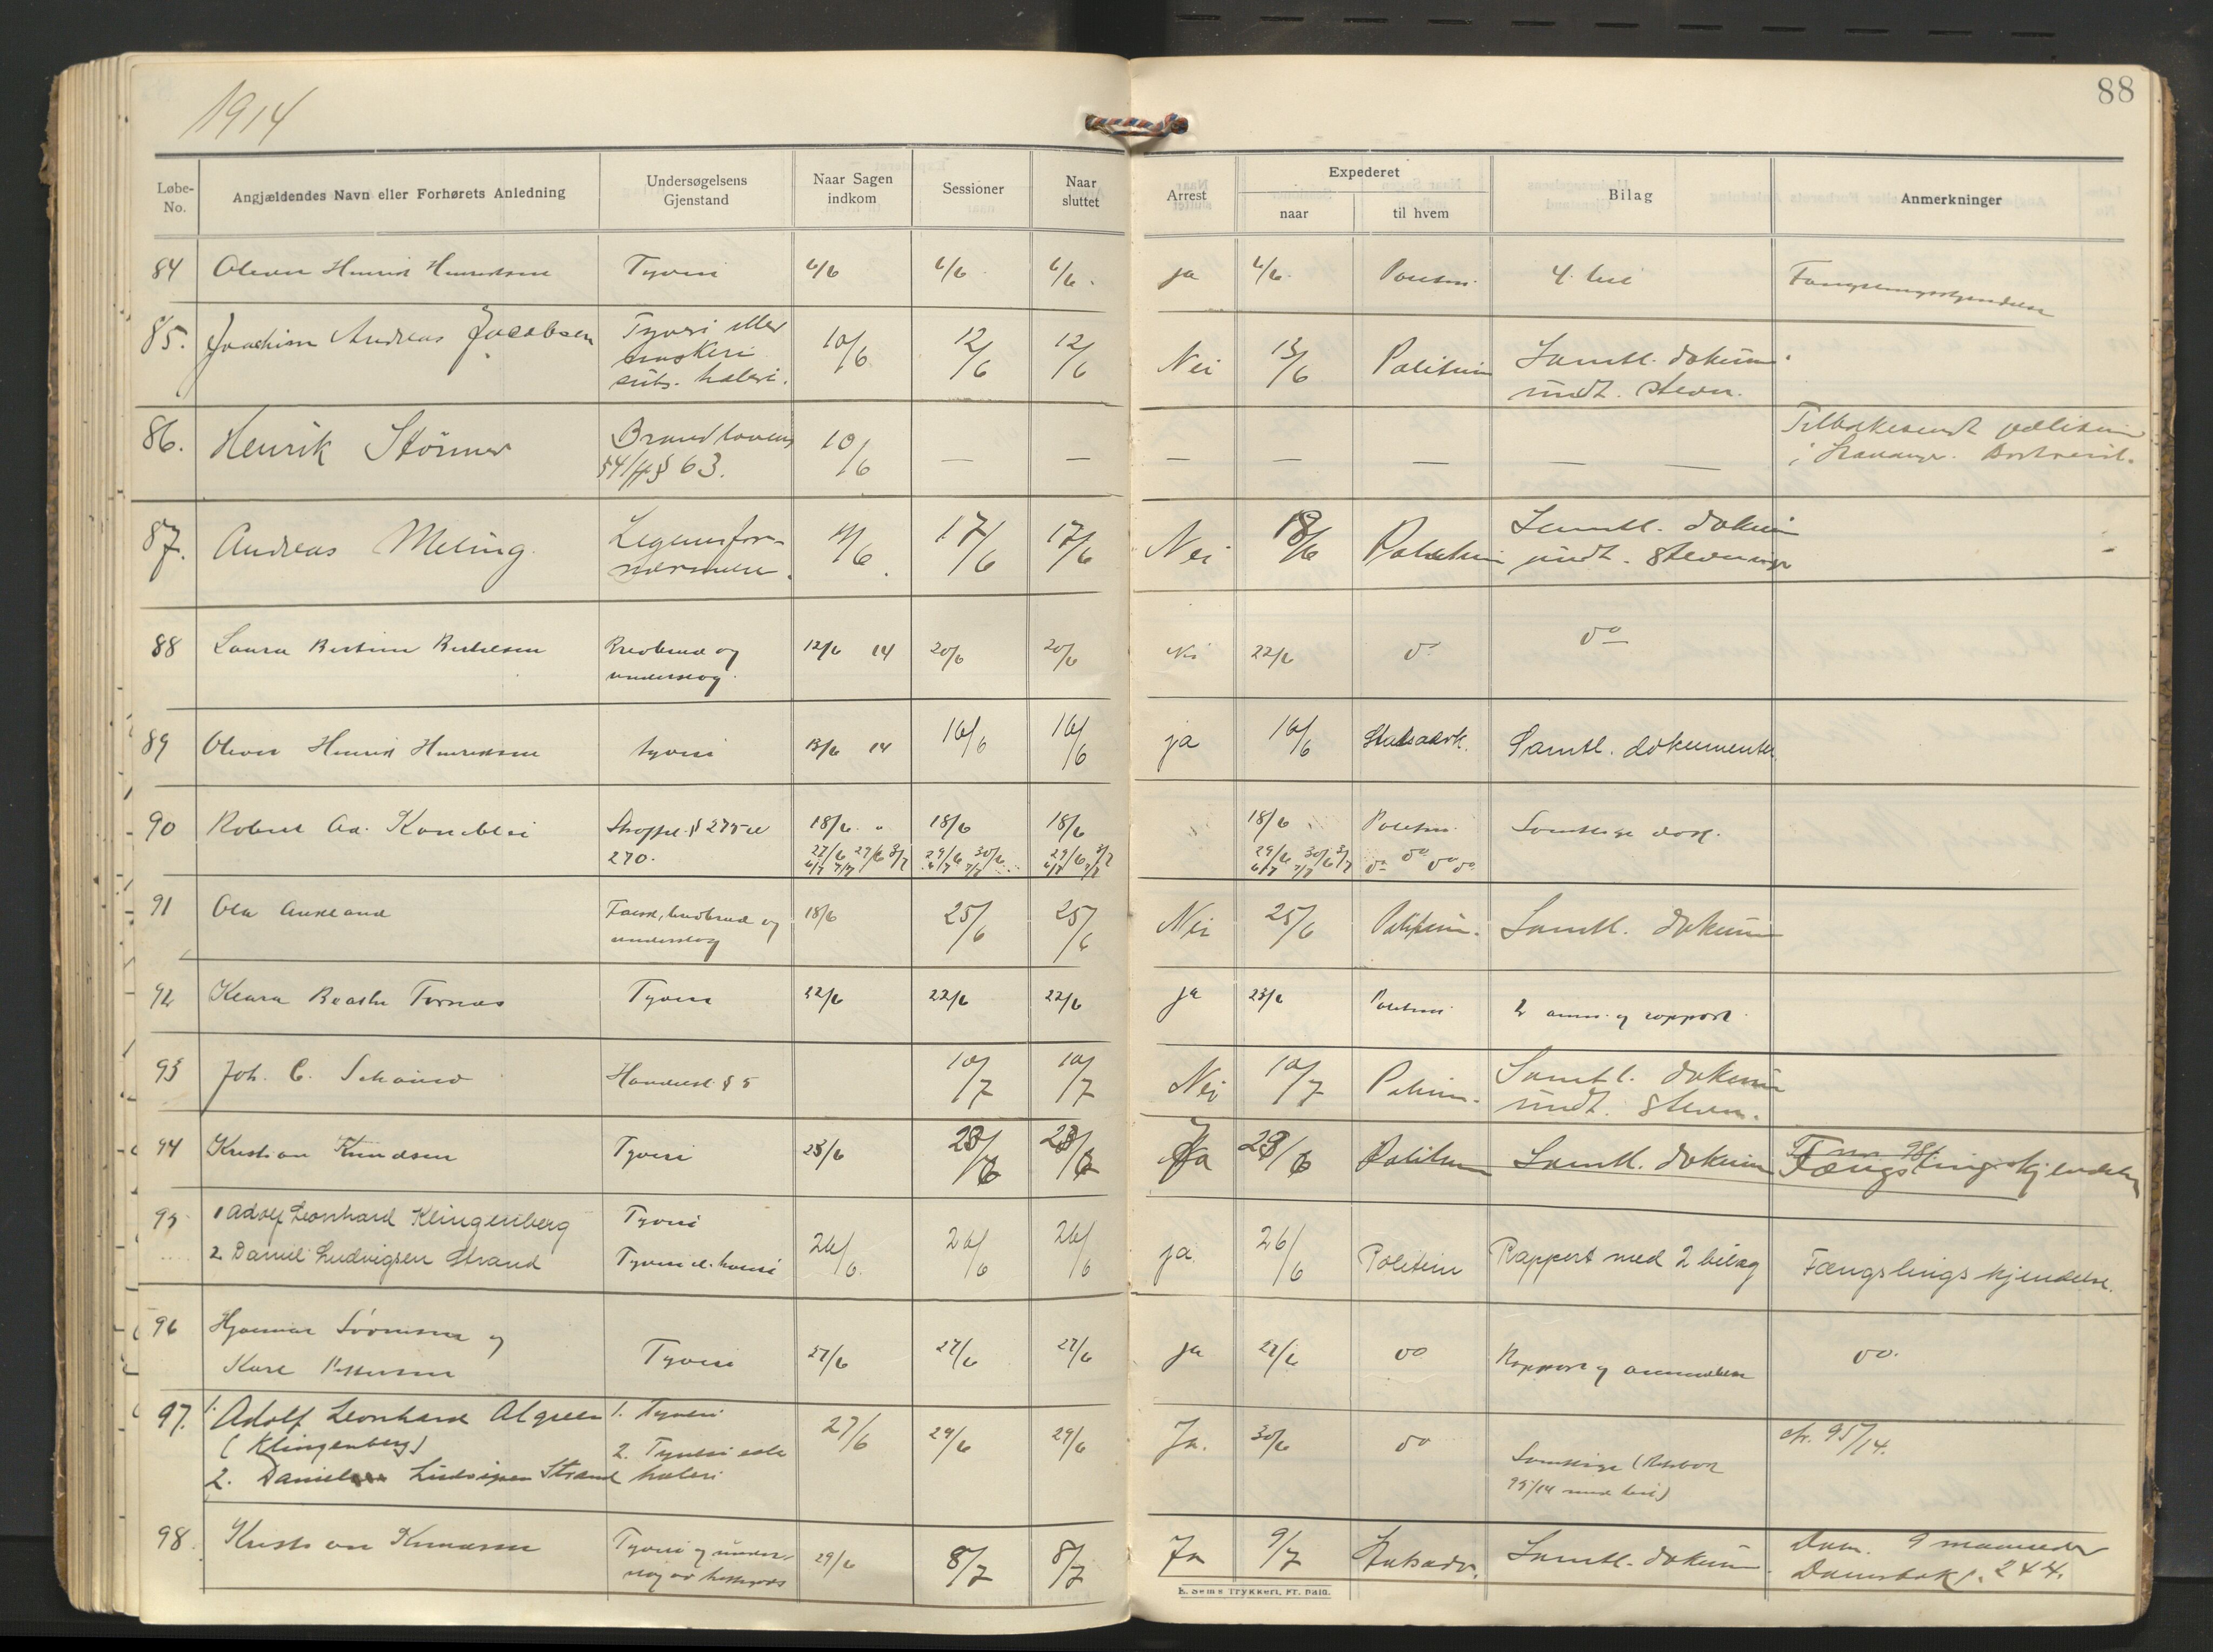 1914
88
Løbe-No. Angjældendes Navn eller Forhørets Anledning Undersøgelsens Gjenstand Naar Sagen indkom Sessioner Naar sluttet Arrest Expederet naar til hvem Bilag Anmerkninger
84 Oliver Henrik Henriksen Tyveri 6/6 6/6 6/6. ja 6/6. Politm. 4 bil Fængslingskjendelse
85. Joachim Andreas Jacobsen Tyveri eller 10/6 12/6 12/6 Nei 13/6 Politim Samtl. dokum.
subs. hæleri. undt. stevn.
86. Henrik Størmer Brandlovens 10/6 — — — — — — — Tilbakesendt politim
§ 63. i Stavanger. Bortreist.
87. Andreas Meling. Legemsfor- 11/6. 17/6 17/6 Nei 18/6 Politim Samtl. dokum
nærmelse. undt. stevning
88 Laura Bertine Bertelsen Brevbrud og 12/6 14 20/6 20/6 Nei 22/6 do do
underslag.
89 Oliver Henrik Henriksen tyveri 13/6 14 16/6 16/6 ja 16/6 Statsadvk. Samtl. dokumenter.
90 Robert Ad. Straffel. § 275 18/6 " 18/6 18/6 18/6 Politm. Samtlige dok.
270. 27/6 27/6 3/7 29/6 30/6 29/6 3/7 29/6 30/6 3/7 do do do do
6/7 7/7 6/7 7/7 6/7 7/7 6/7 7/7
91 Ola Aukland Falsk, brevbrud og 18/6 25/6 25/6 Nei 25/6 Politim. Samtl. dokum
underslag
92 Klara Beathe Tornes Tyveri 22/6 22/6 22/6 ja 23/6 Politm 2 anm. og rapport.
93 Joh. C. Handelsl. § 5 10/7 10/7 Nei 10/7 Politim. Samtl. dokum
undt. stevn.
94 Kristian Knudsen Tyveri 23/6 23/6 23/6 Ja 23/6 Politim Samtl. dokum Fængslingskjendelse
95 1 Adolf Leonhard Klingenberg Tyveri
2. Daniel Ludvigsen Strand Tyveri el. hæleri 26/6. 26/6 26/6 ja. 26/6 Politim Rapport med 2 bilag Fængslingskjendelse.
96 Hjalmar Sørensen og
Karl Pettersen Tyveri 27/6 27/6 27/6 ja 27/6 do Rapport og anmeldelse do.
97. 1. Adolf Leonhard Algreen 1. Tyveri 27/6 29/6 29/6 Ja. 30/6 do cfr. 95/14.
(Klingenberg) 2. Tyveri eller Samtlige (Retsbok
2. Daniel Ludvigsen Strand hæleri 95/14 med bil)
98. Kristian Knudsen Tyveri og under- 29/6 8/7 8/7 Ja 9/7 Statsadv. Samtl. dokum. Dom. 9 maaneder
slag av hittegods Domsbok 1. 244.
E. Sem's Trykkeri, Fr. hald.